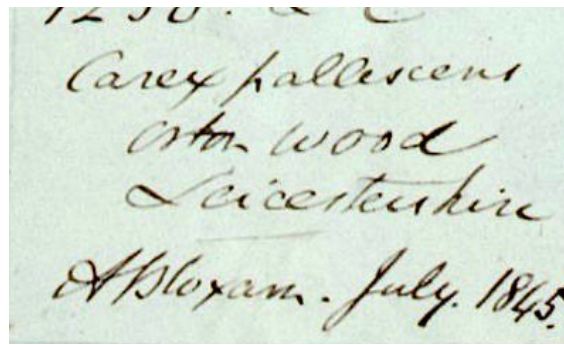 Carex pallescens
Orton Wood
Leicestershire
ABloxam. July. 1845.